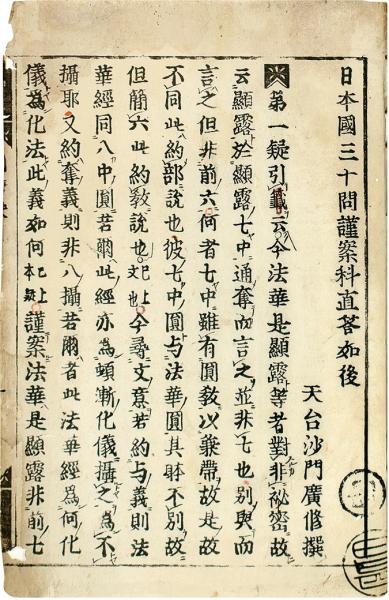 日本國三十問謹案科直荅如後
天台沙門廣修撰
第一疑引籤云今法華是顯露等者對非祕密故
云顯露於顯露七中通奪而言之並非七也別與而
言之但非前六何者七中雖有圓教以兼帶故是故
不同此約部說也彼七中圓与法華圓其躰不別故
但簡六此約教說也已上文也今尋文意若約与義則法
華經同八中圓若爾此經亦為頓漸化儀攝之為不
攝耶又約奪義則非八攝若爾者此法華經為何化
儀為化法此義如何已上本疑謹案法華是顯露非前七